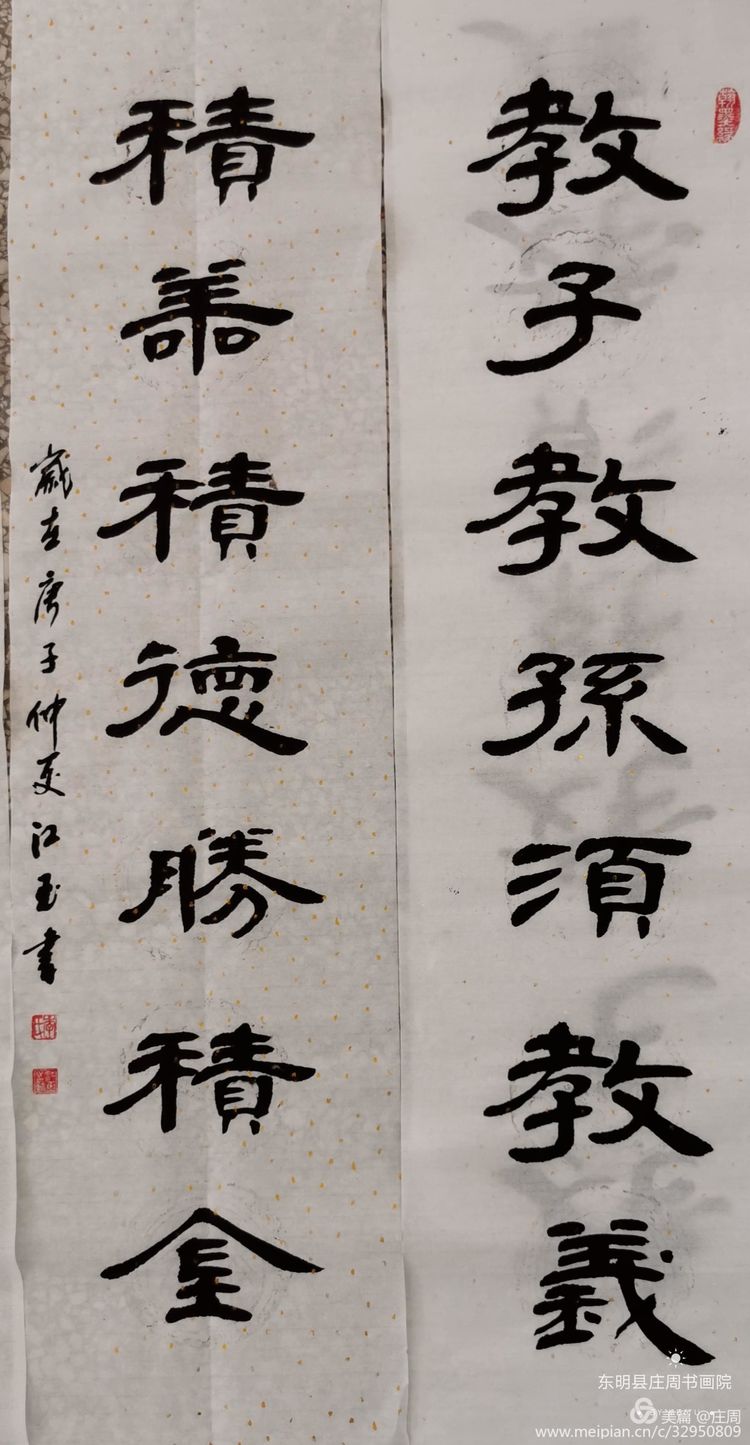 教子教孫須教義
積善積德勝積金
歲在庚子仲夏江玉書
东明县庄周书画院
美篇 @庄周
www.meipian.cn/c/32950809